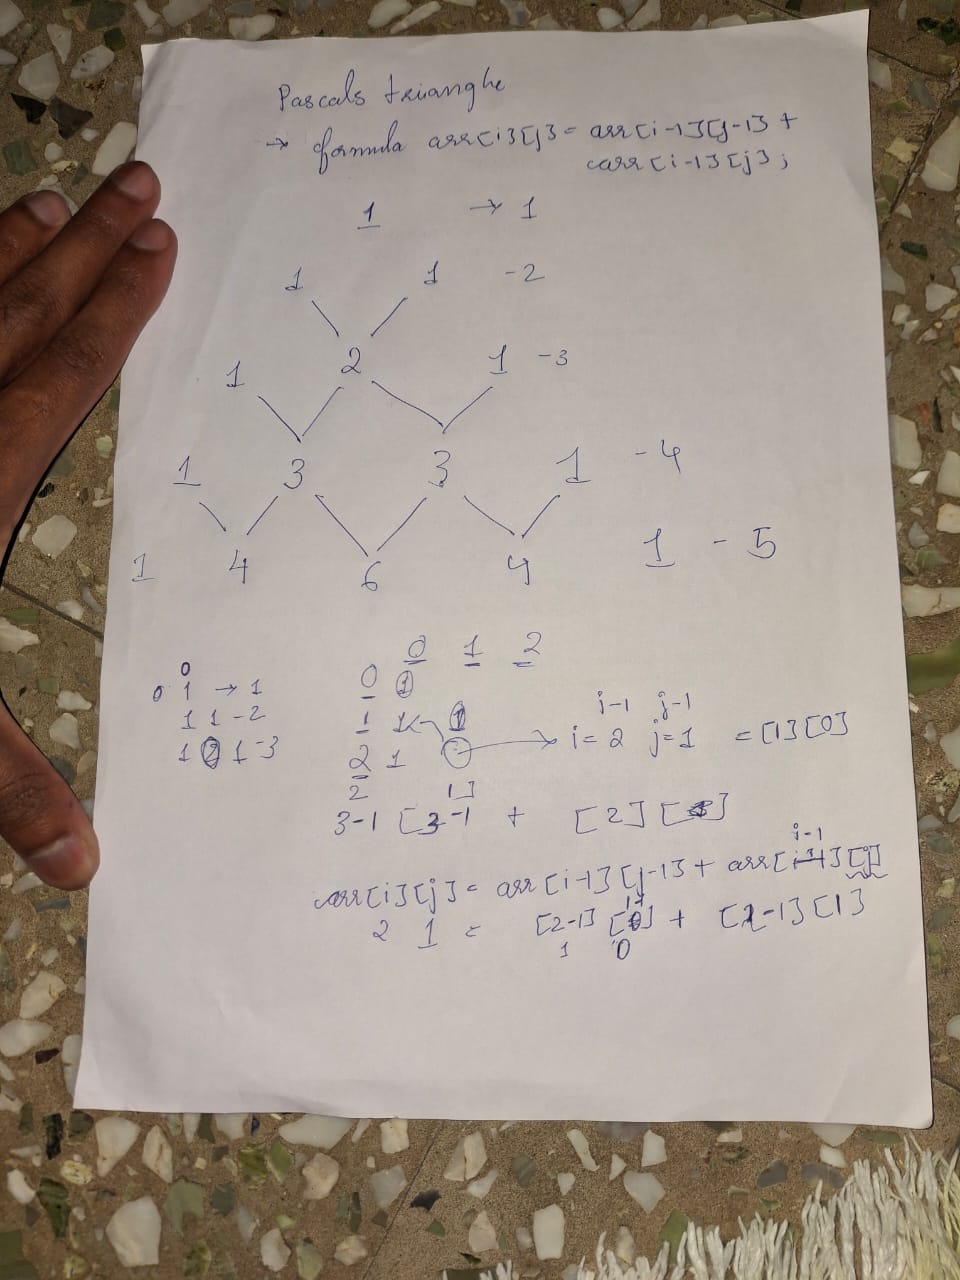 Pascals trianghe
→ formula arr[i][j] = arr[i-1][j-1] +
arr[i-1][j];
1 → 1
1 1 -2
1 2 1 -3
1 3 3 1 -4
1 4 6 4 1 - 5
0 1 2
0
0 1 → 1
0 1
1 1 -2
1 1 1
i-1 j-1
1 2 1 -3
2 1 → i= 2 j=1 = [1][0]
2 1]
3-1 [3-1 + [2] [ ]
i-1
arr[i][j] = arr[i-1][j-1] + arr[ ][j]
2 1 = [2-1] [ ] + [2-1][1]
1 0